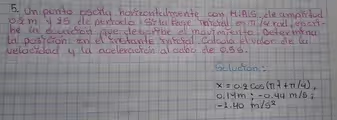 5. Un punto oscila horizontalmente con M.A.S. de amplitud
0.2m y 2s de periodo. Si la fase inicial en π/4 rad, escri-
be la ecuación que describe el movimiento. Determina
la posición en el instante inicial. Calcula el valor de la
velocidad y la aceleración al cabo de 0.5s.
Solución:
x = 0.2 cos(πt + π/4),
0.14m ; -0.44 m/s ;
-1.40 m/s²